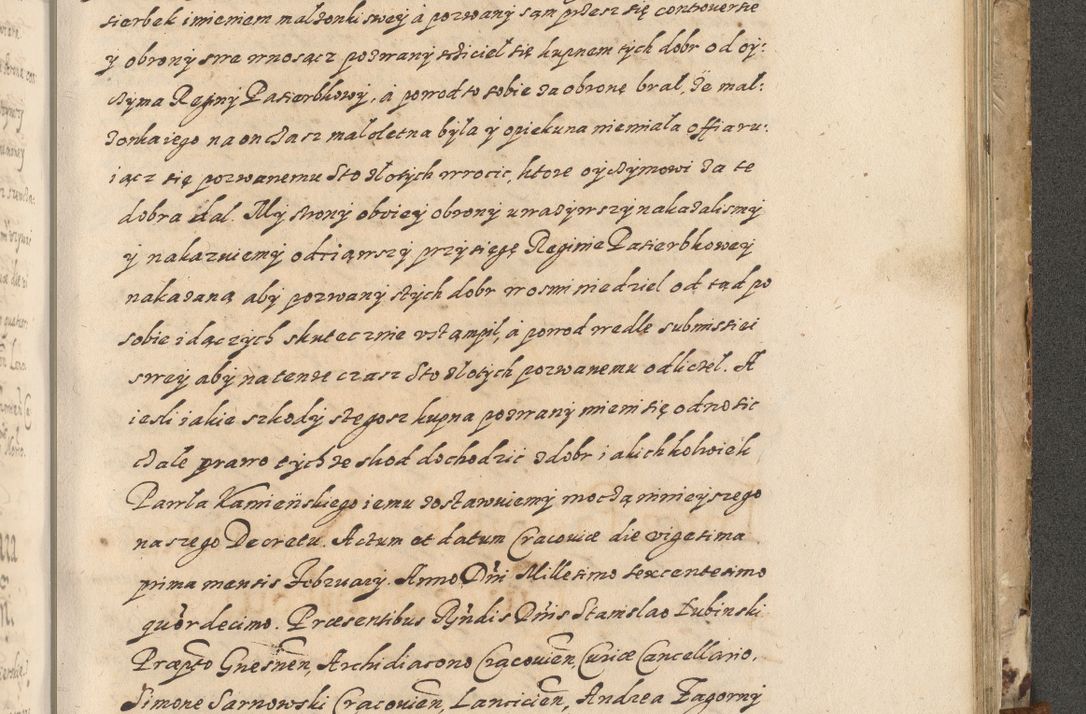 sierbek imieniem małżonki swey à pozwany sąm przesz się controversie
y obrony swe wnosącz pozwany sźiciel się kupnem tych dobr od oy:
czyma Reginy Pasierbkowy, à powod to sobie za obronę bral, że mal:
żonka iego na on czasz maloletna była y opiekuna niemiała offiaru:
iącz się pozwanemu sto złotych wrocic, ktore oyczymowi za te
dobra dal. My strony oboiey obrony uwazywszy nakazalismy
y nakazuiemy odciąwszy przysięgę Reginie Pasierbkowey
nakazaną aby pozwany stych dobr w osm niedziel od tąd po
sobie idączych skutecznie vstąmpil, à powod wedle submissiei
swey aby na tenze czasz sto zlotych pozwanemu odliczel. A
iesli iakie szkody stegosz kupna pozwany mieni się odnosic
czale prawo tych ze skod dochodzic z dobr iakichkolwiek
Pawla Kamieńskiego iemu zostawuiemy moczą ninieyszego
naszego Decretu. Actum et datum Cracoviæ die vigesima
prima mensis February. Anno Dni Millesimo sexcentesimo
quơrdecimo. Præsentibus Rndis Dnis Stanislao Łubinski
Præpto Gnesnen, Archidiacono Cracovien, Curiæ Cancellario,
Simone Sarnowski Cracovien, Lancicien, Andrea Zagorny